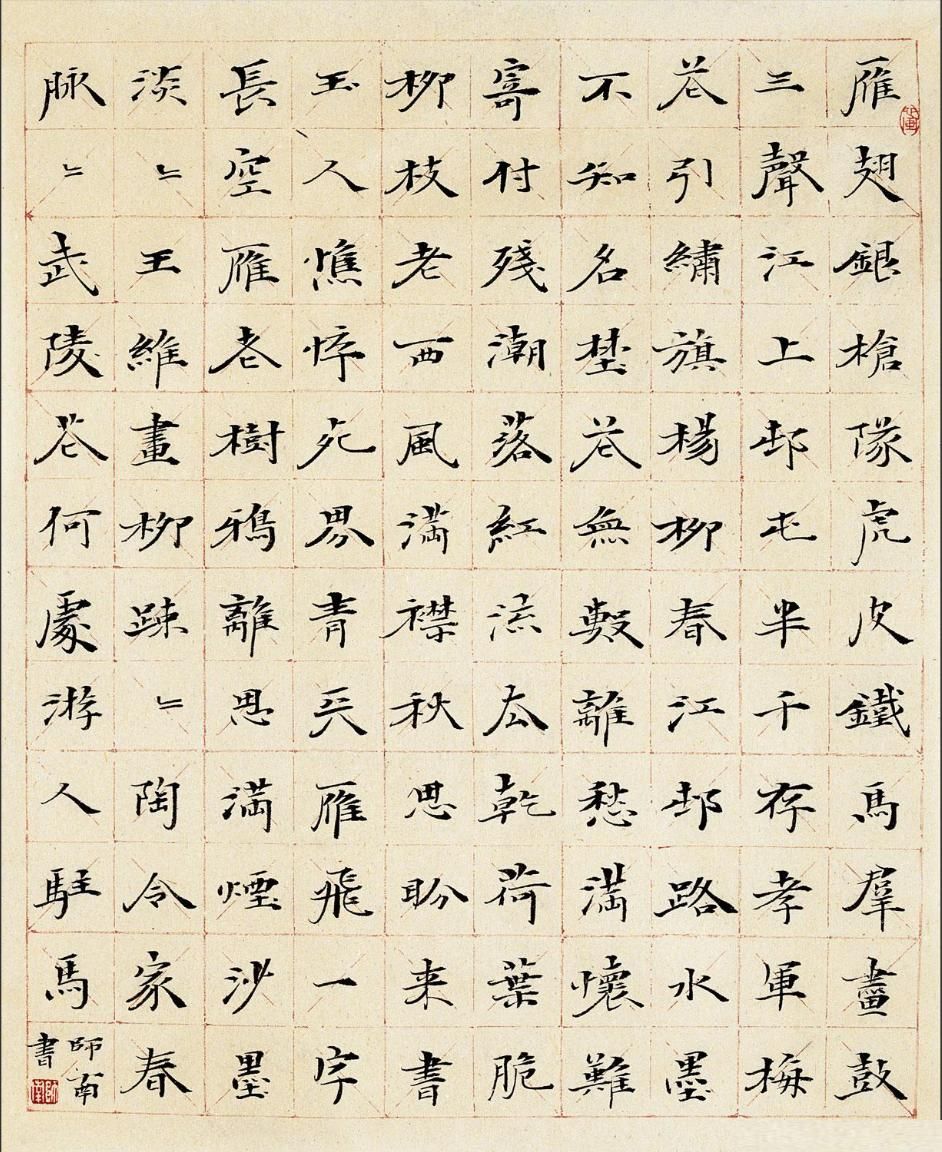 雁翅銀槍隊虎皮鐵馬羣畫鼓
三聲江上邨屯半千存孝軍梅
花引繡旗楊柳春江邨路水墨
不知名埜花無數離愁滿懷難
寄付殘潮落紅流去乾荷葉脆
柳枝老西風滿襟秋思盼来書
玉人憔悴死界青天雁飛一字
長空雁老樹鴉離思滿煙沙墨
淡〻王維畫柳踈〻陶令家春
脉〻武陵花何處游人駐馬
師南
書